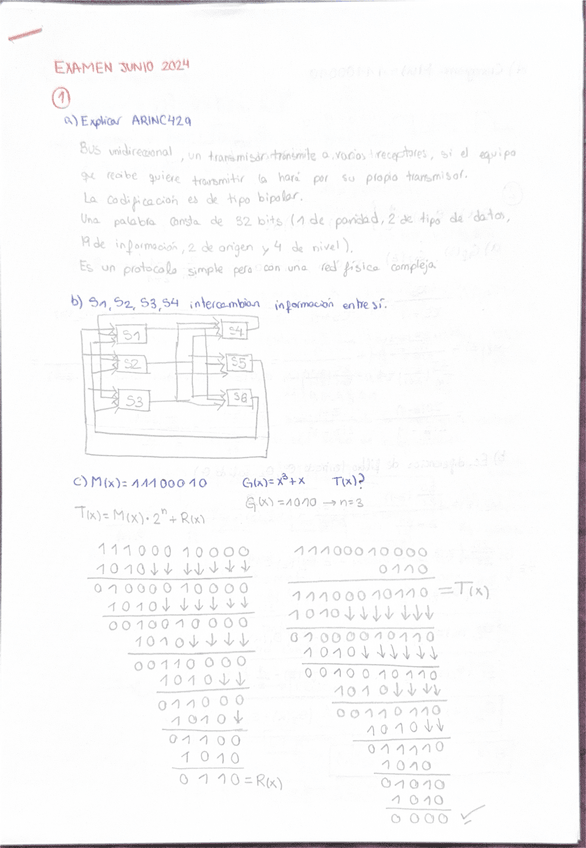 EXAMEN JUNIO 2024
1
a) Explicar ARINC429
Bus unidireccional, un transmisor transmite a varios receptores, si el equipo
que recibe quiere transmitir la hará por su propio transmisor.
La codificación es de tipo bipolar.
Una palabra consta de 32 bits (1 de paridad, 2 de tipo de datos,
19 de información, 2 de origen y 4 de nivel).
Es un protocolo simple pero con una red física compleja
b) S1, S2, S3, S4 intercambian información entre sí.
S1 S4
S2 S5
S3 S6
c) M(x)=11100010 G(x)=x³+x T(x)?
G(x)=1010 → n=3
T(x)=M(x)·2ⁿ+R(x)
111000 10000
1010↓↓ ↓↓↓↓↓
010000 10000
1010↓↓↓↓↓↓
0010010000
1010↓↓↓↓↓
00110 000
1010↓↓
011000
1010↓
01100
1010
0110=R(x)
11100010000
0110
111000 10110 =T(x)
1010↓↓↓↓↓↓↓
01000010110
1010↓↓↓↓↓↓
00100 10110
1010↓↓↓↓
00110110
1010↓↓
011110
1010
01010
1010
0000 ✓